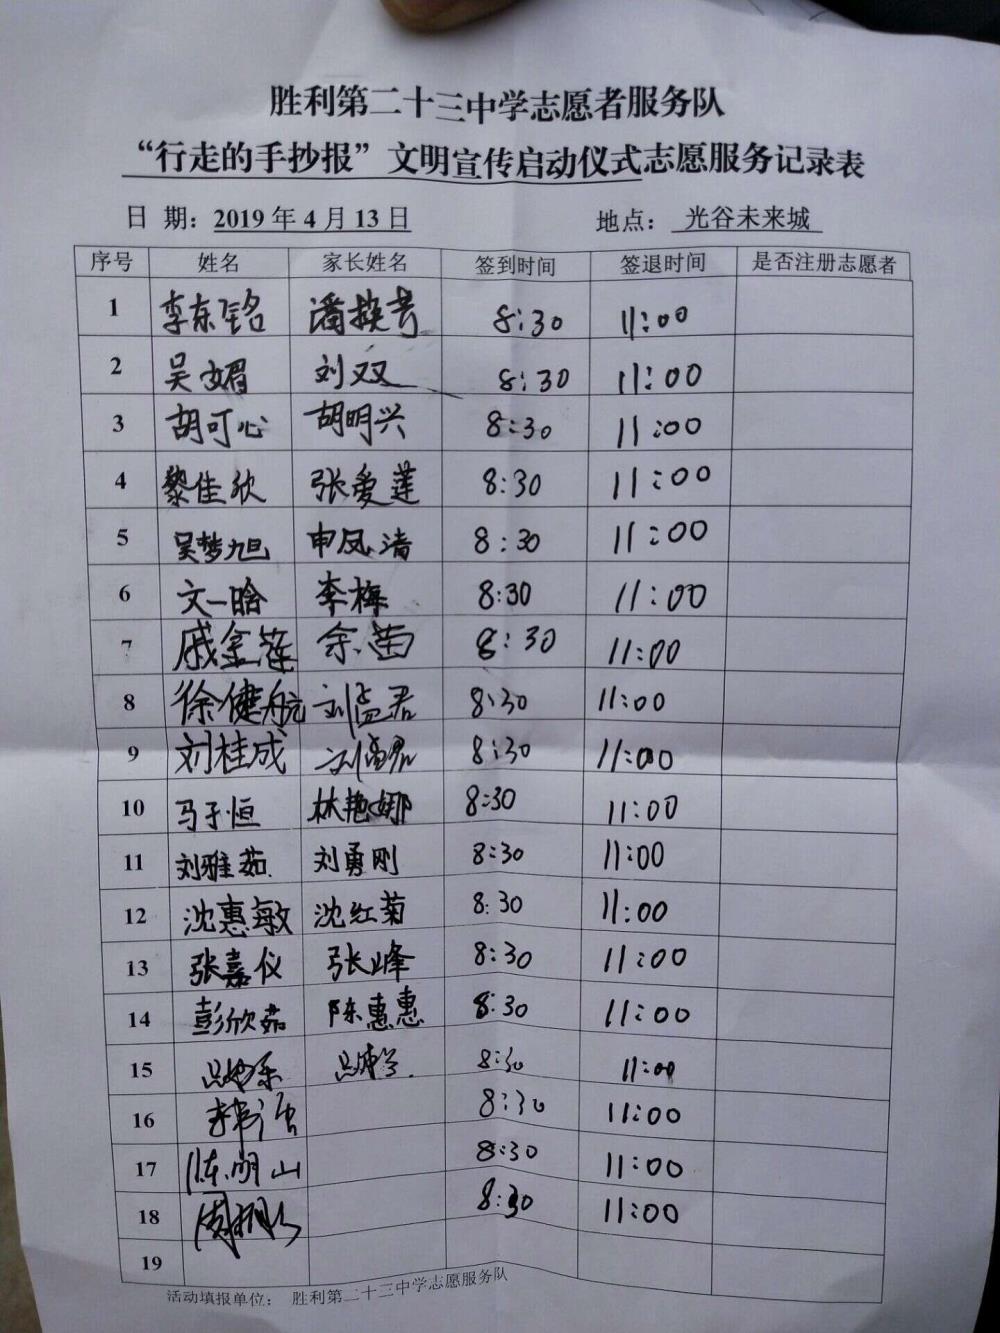 胜利第二十三中学志愿者服务队
“行走的手抄报”文明宣传启动仪式志愿服务记录表
日 期：2019 年 4 月 13 日 地点： 光谷未来城
序号 姓名 家长姓名 签到时间 签退时间 是否注册志愿者
1 李东铭 潘换弯 8:30 11:00
2 吴媚 刘双 8:30 11:00
3 胡可心 胡明兴 8:30 11:00
4 黎佳欣 张爱莲 8:30 11:00
5 吴梦旭 申凤清 8:30 11:00
6 文一晗 李梅 8:30 11:00
7 戚金莲 余苗 8:30 11:00
8 徐健航 8:30 11:00
9 刘桂成 8:30 11:00
10 马子恒 林艳娜 8:30 11:00
11 刘雅茹 刘勇刚 8:30 11:00
12 沈惠敏 沈红菊 8:30 11:00
13 张嘉仪 张峰 8:30 11:00
14 彭欣茹 陈惠惠 8:30 11:00
15 8:30 11:00
16 8:30 11:00
17 陈明山 8:30 11:00
18 8:30 11:00
19
活动填报单位： 胜利第二十三中学志愿服务队